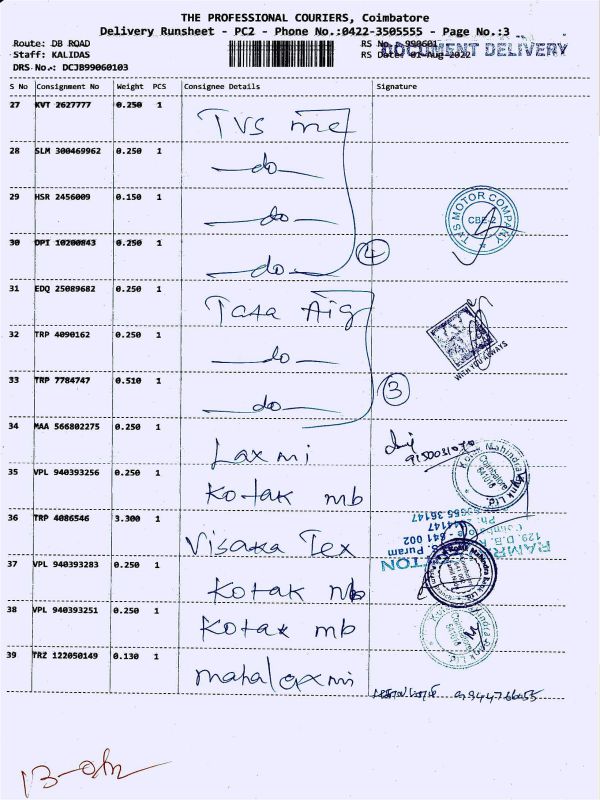 THE PROFESSIONAL COURIERS, Coimbatore
Delivery Runsheet - PC2 - Phone No.:0422-3505555 - Page No.:3
Route: DB ROAD
RS No.: 990601
DOCUMENT DELIVERY
Staff: KALIDAS
RS Date: 01-Aug-2022
DRS No.: DCJB99060103
S No Consignment No Weight PCS Consignee Details Signature
27 KVT 2627777 0.250 1 TVS mc
28 SLM 300469962 0.250 1 —do—
29 HSR 2456009 0.150 1 —do—
TVS MOTOR COMPANY
CBE-2
30 DPI 10200843 0.250 1 —do—
4
31 EDQ 25089682 0.250 1 Tata Aig
32 TRP 4090162 0.250 1 —do—
WITH YOU ALWAYS
33 TRP 7784747 0.510 1 —do—
3
34 MAA 566802275 0.250 1 Laxmi
Kotak Mahindra Bank Ltd
Coimbatore
641018
35 VPL 940393256 0.250 1 Kotak mb
36 TRP 4086546 3.300 1 Visaka Tex
129, D.B.
R.S. Puram
641 002
37 VPL 940393283 0.250 1 Kotak mb
38 VPL 940393251 0.250 1 Kotak mb
39 TRZ 122050149 0.130 1 mahalaxmi